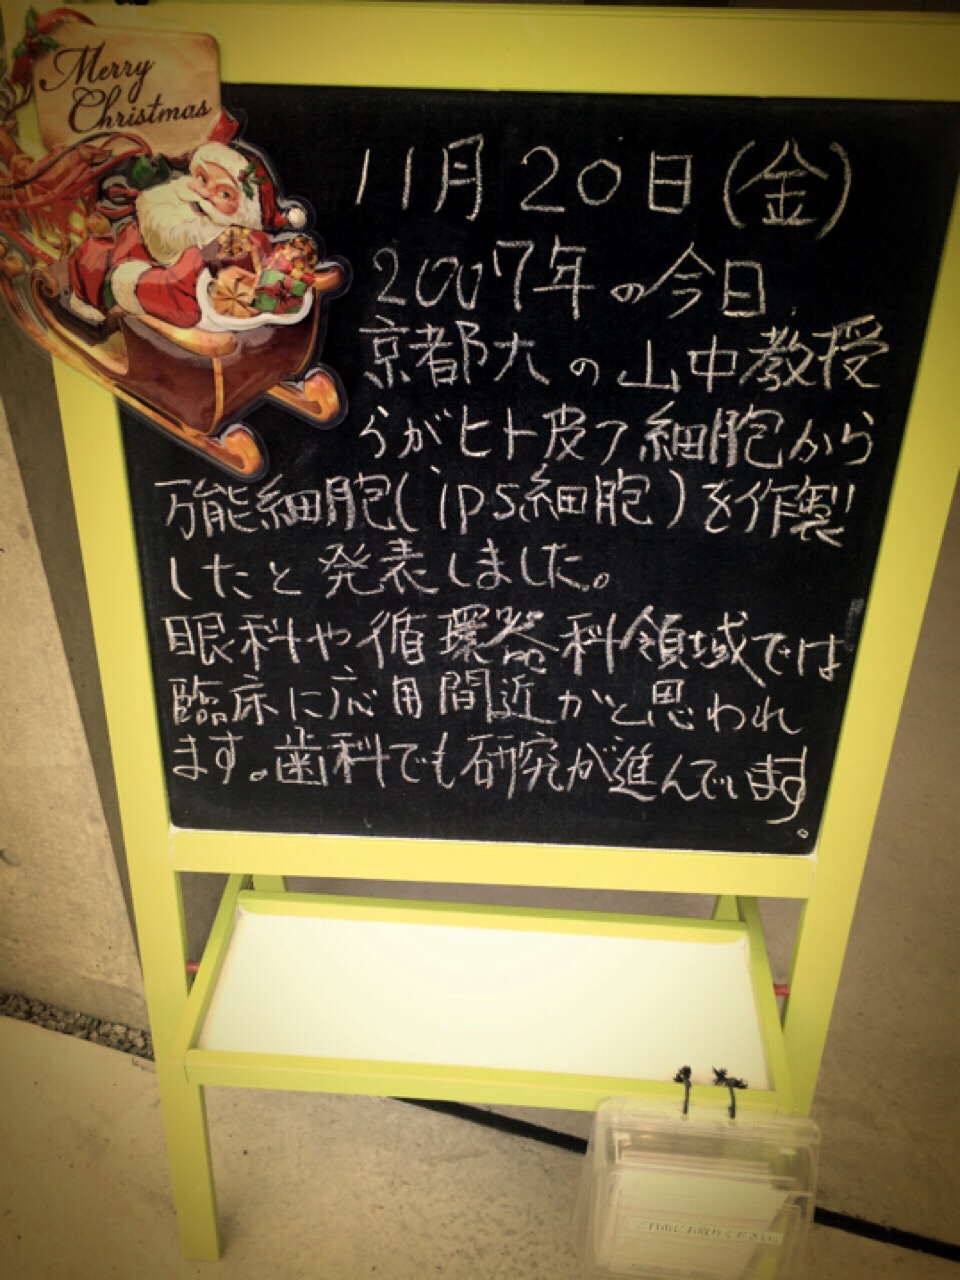 Merry
Christmas
11月20日(金)
2007年の今日
京都大の山中教授
らがヒト皮フ細胞から
万能細胞(ips細胞)を作製
したと発表しました。
眼科や循環器科領域では
臨床に応用間近かと思われ
ます。歯科でも研究が進んでいます。
ご自由にお取りください。